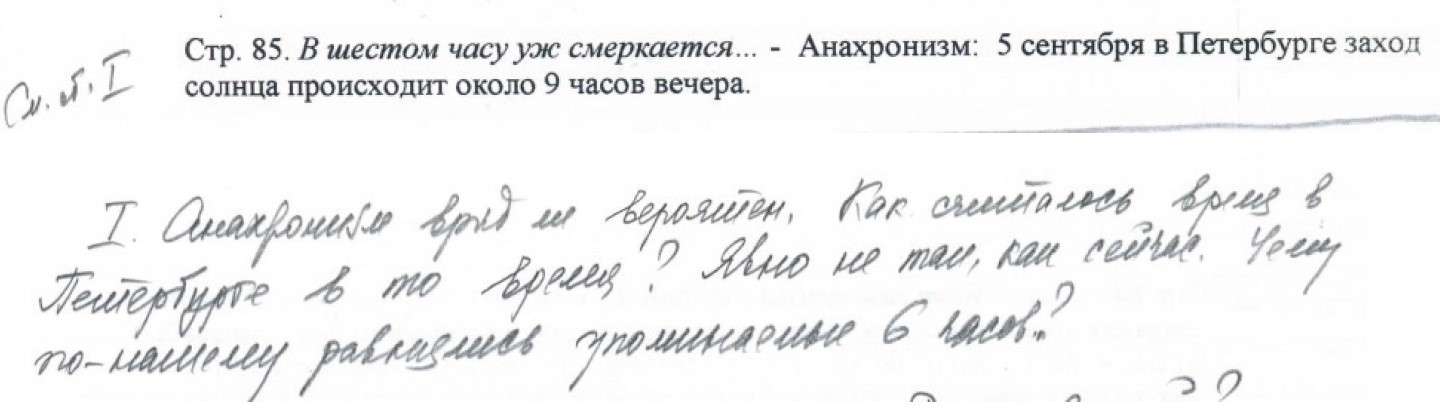 Стр. 85. В шестом часу уж смеркается... - Анахронизм: 5 сентября в Петербурге заход
солнца происходит около 9 часов вечера.
См. л. I
I. Анахронизм вряд ли вероятен. Как считалось время в
Петербурге в то время? Явно не так, как сейчас. Чему
по-нашему равнялись упоминаемые 6 часов?